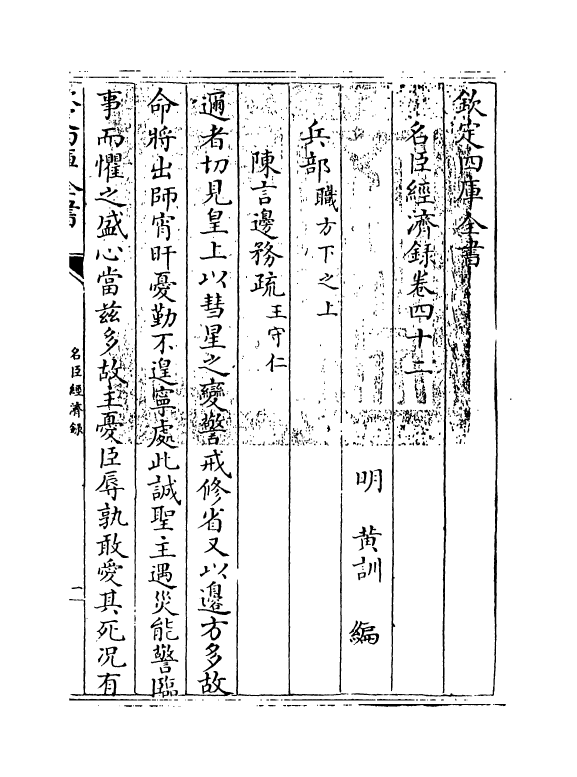 欽定四庫全書
名臣經濟錄卷四十二
明 黄訓 編
兵部職方下之上
陳言邊務疏王守仁
邇者切見皇上以彗星之變警戒修省又以邊方多故
命將出師宵旰憂勤不遑寧處此誠聖主遇災能警臨
事而懼之盛心當兹多故主憂臣辱孰敢愛其死况有
名臣經濟録